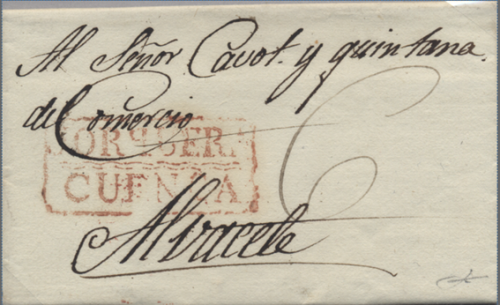 Al Señor Cavot. y quintana.
del Comercio
CUENCA
Alvacete